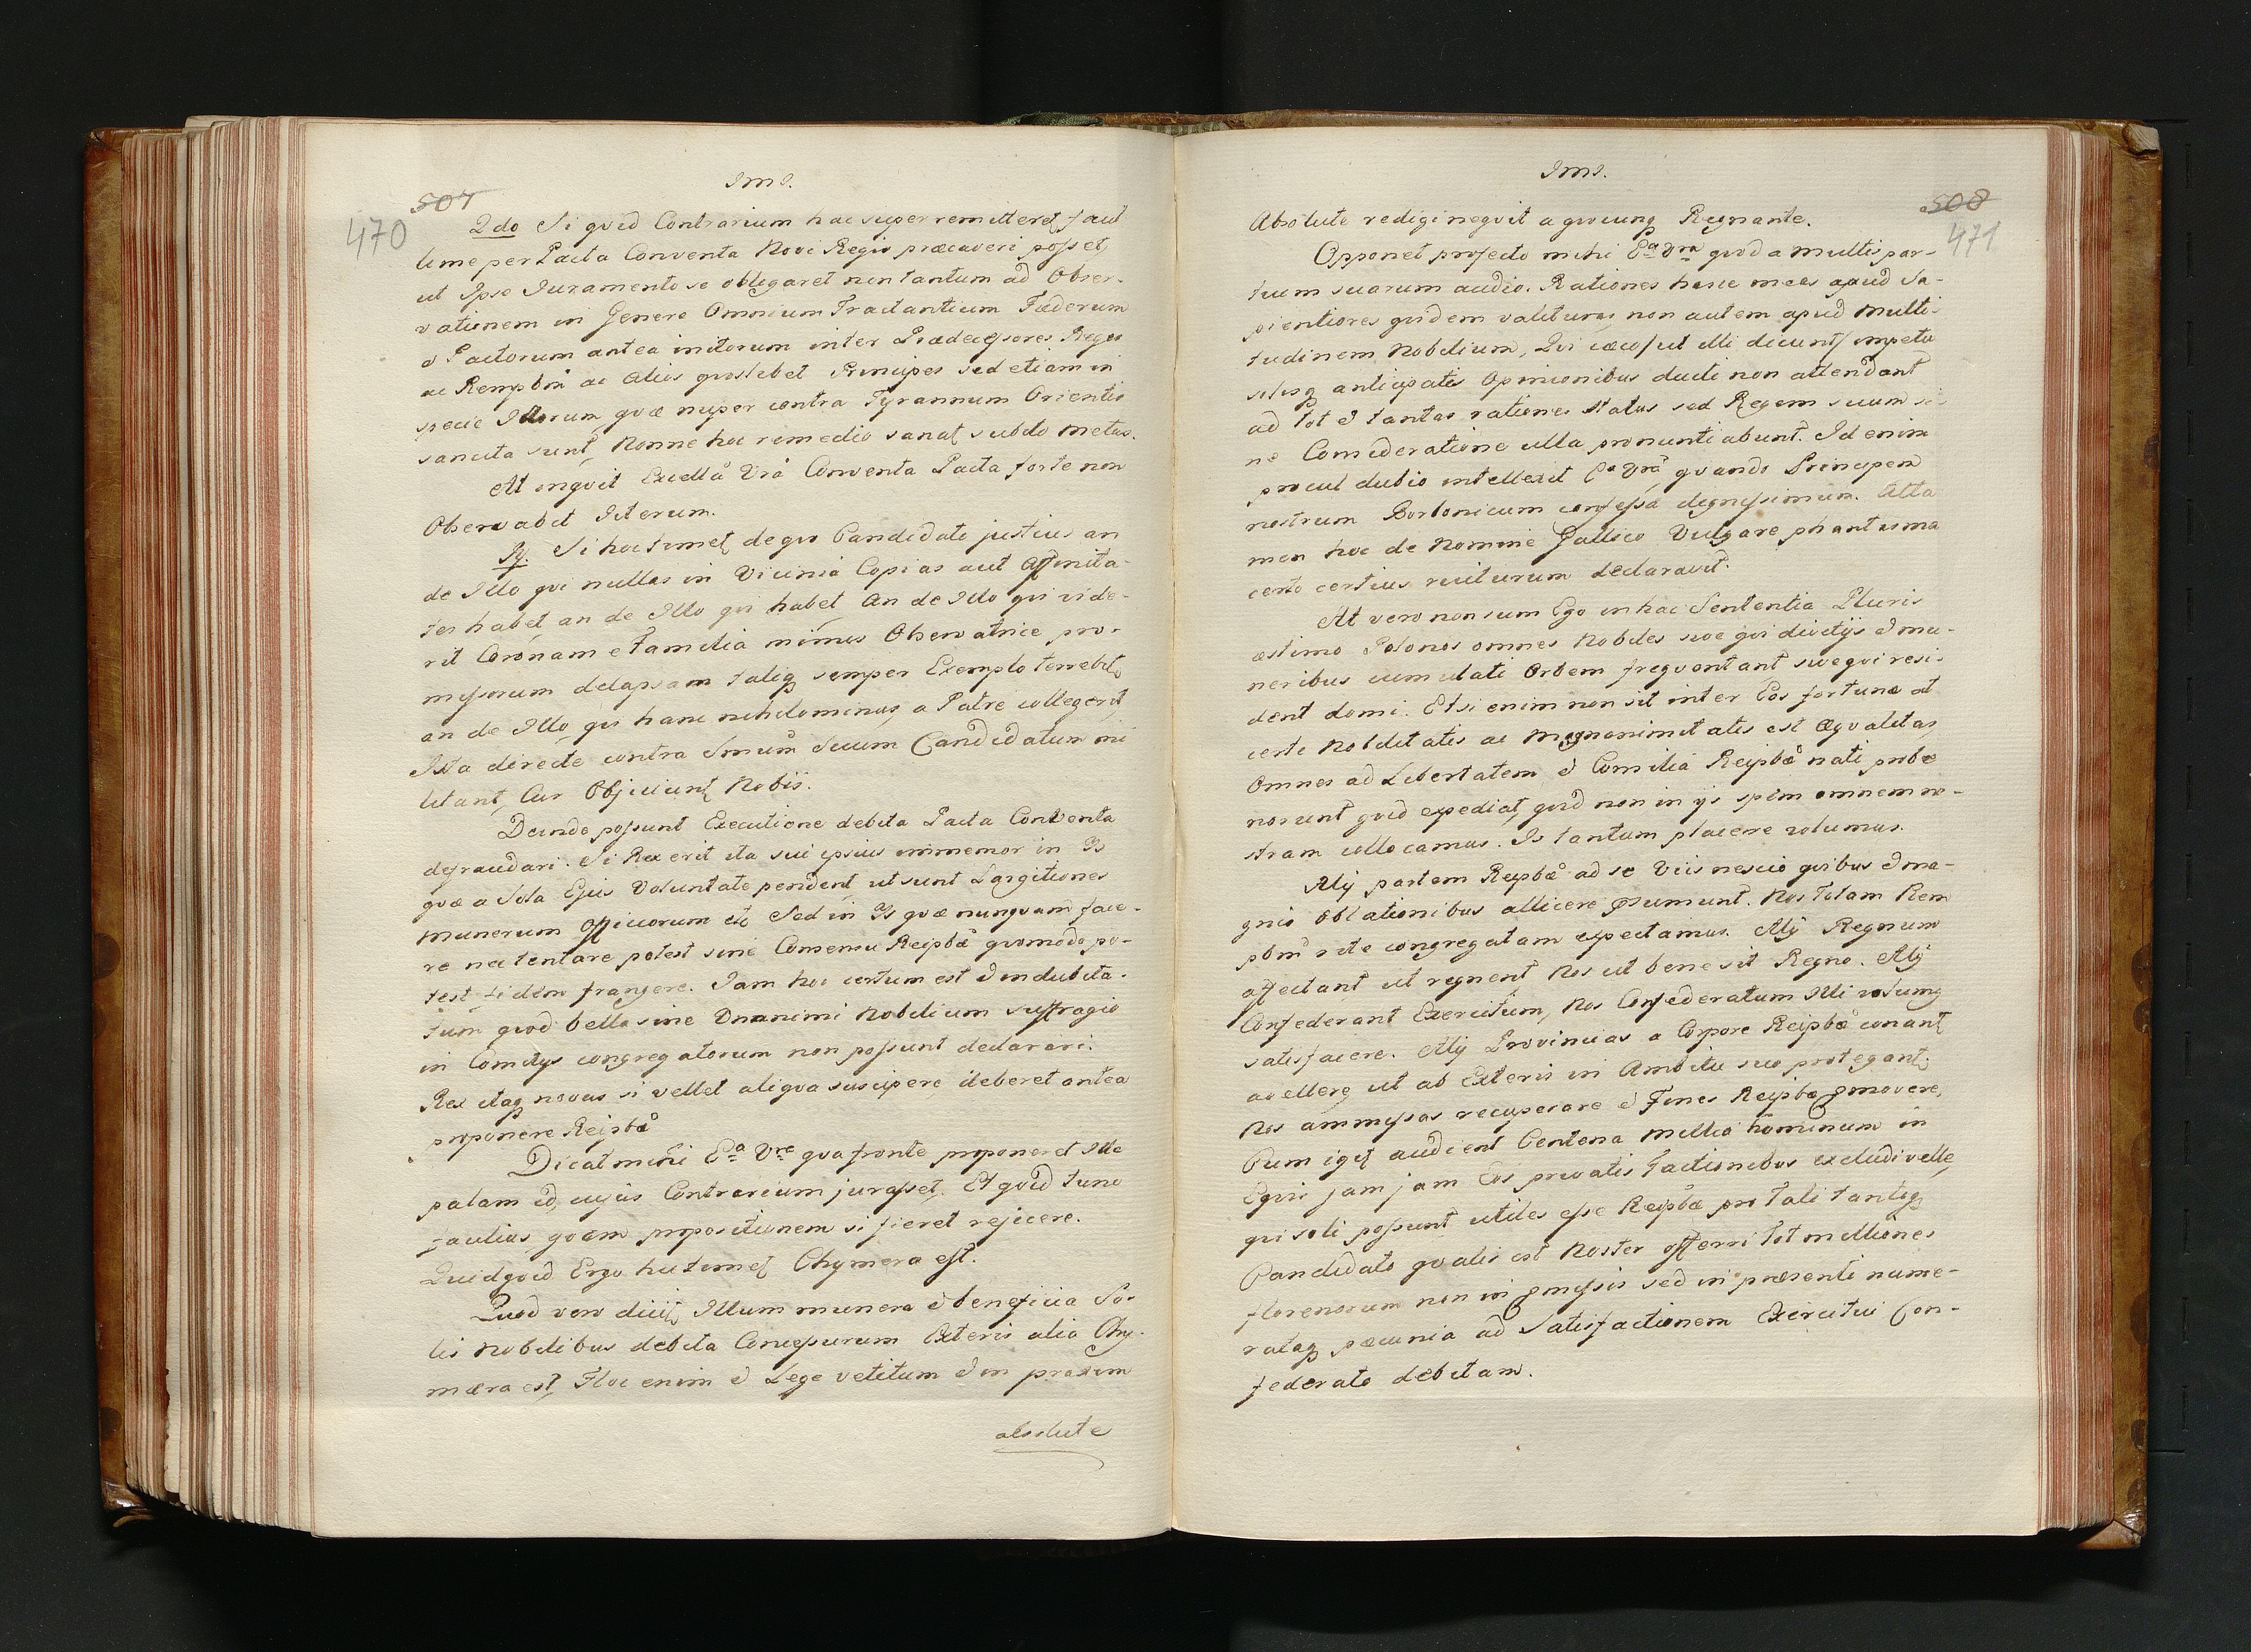 Im I.
507
470
2do Si qvid Contrarium hac super remitteret, facil
lime per Pacta Conventa Novi Regis præcaveri posset,
ut Ipse Juramento se obligaret non tantum ad Obser-
vationem in Genere Omnium Tractantium Fæderum
& Pactorum antea initorum inter Prædecessores Reges
ac Rempbm̃ ac alios qvoslibet Principes sed etiam in
specie Illorum, qvæ nuper contra Tyrannum Orientis
sancita sunt, Nonne hoc remedio sanat subdo metus.
At inqvit Excellã Vrã Conventa Pacta forte non
Observabit Iterum.
Rx. Si hoc timet, de qvo Candidato justius an
de Illo qvi nullas in Vicinia Copias aut Affinita-
tes habet, an de Illo qvi habet, An de Illo qvi vide-
rit Coronam e Familia minus Observatrice pro-
missorum delapsam taliq semper Exemplo terrebit,
an de Illo, qvi hanc nihilominus, a Patre collegerit,
Ista directe contra Smum̃ Suum Candidatum mi
litant, Cur Objiciunt Nobis.
Deinde possunt Executione debita Pacta Conventa
defraudari. Si Rex erit ita sui ipsius immemor in Is
qvæ a Sola Ejus Voluntate pendent, ut sunt Largitiones
munerum Officiorum etc Sed in Is qvæ nunqvam face-
re nec tentare potest sine Consensu Reipbæ qvomodo po-
test fidem frangere. Jam hoc certum est & indubita-
tum qvod bella sine Unanimi Nobilium suffragio
in Comitijs congregatorum non possunt declarari.
Rex itaq novus si vellet aliqva suscipere deberet antea
proponere Reipbæ
Dicat mihi Ea Vra qva fronte proponeret Ille
palam id, cujus Contrarium jurasset, Et qvid tunc
facilius, qvam propositionem si fieret rejicere.
Quidqvid Ergo hic timet, Chymera est.
Quod vero dicit, Illum munera & beneficia So-
lis Nobilibus debita Concessurum Exteris alia Chy-
mæra est, Hoc enim & Lege vetitum & in praxim
absolute
Im I.
508
471
Absolute redigi neqvit a qvocunq Regnante.
Opponet profecto mihi Ea Vra qvod a multis par-
tium suarum audio. Rationes hasce meas apud Sa-
pientiores qvidem valituras, non autem apud Multi-
tudinem Nobilium, Qvi cæco /ut illi dicunt/ impetu
solisq anticipatis Opinionibus ducti non attendant
ad tot & tantas rationes status sed Regem suum si-
ne Consideratione ulla pronuntiabunt. Id enim
procul dubio intellexit Ea Vra, qvando Principem
nostrum Borbonicum confessa dignissimum. Atta
men hoc de Nomine Gallico Vulgare phantasma
certo certius ruiturum declaravit.
At vero non sum Ego in hac Sententia Pluris
æstimo Polonos omnes Nobiles sive qvi divitijs & mu-
neribus cumulati Orbem freqventant sive qvi resi-
dent domi. Etsi enim non sit inter Eos fortunæ at
certe Nobilitatis ac Magnanimitatis est Æqvalitas,
Omnes ad Libertatem & Comitia Reipbæ nati probe
norunt qvid expediat, qvid non in ijs spem omnem no-
stram collocamus. Is tantum placere volumus.
Alij partem Reipbæ ad se Viis nescio qvibus & ma-
gnis oblationibus allicere præsumunt. Nos Totam Rem
pbm̃ rite congregatam expectamus. Alij Regnum
affectant ut regnent, Nos ut bene sit Regno. Alij
Confederant Exercitum, Nos Confederatum Illi volumus
satisfacere. Alij Provincias a Corpore Reipbæ conant,
avellere, ut ab Exteris in Ambitu suo protegant,
Nos ammissas recuperare & Fines Reipbæ promovere,
Cum igit audient Centena millia hominum in
Eqvis jam jam Eos privatis Factionibus excludi velle,
qvi soli possunt utiles esse Reipbæ pro Tali tantoq
Candidato qvalis est Noster offerri Tot milliones
florenorum non in promissis sed in præsenti nume-
rataq pecunia ad Satisfactionem Exercitui Con-
federato debitam.